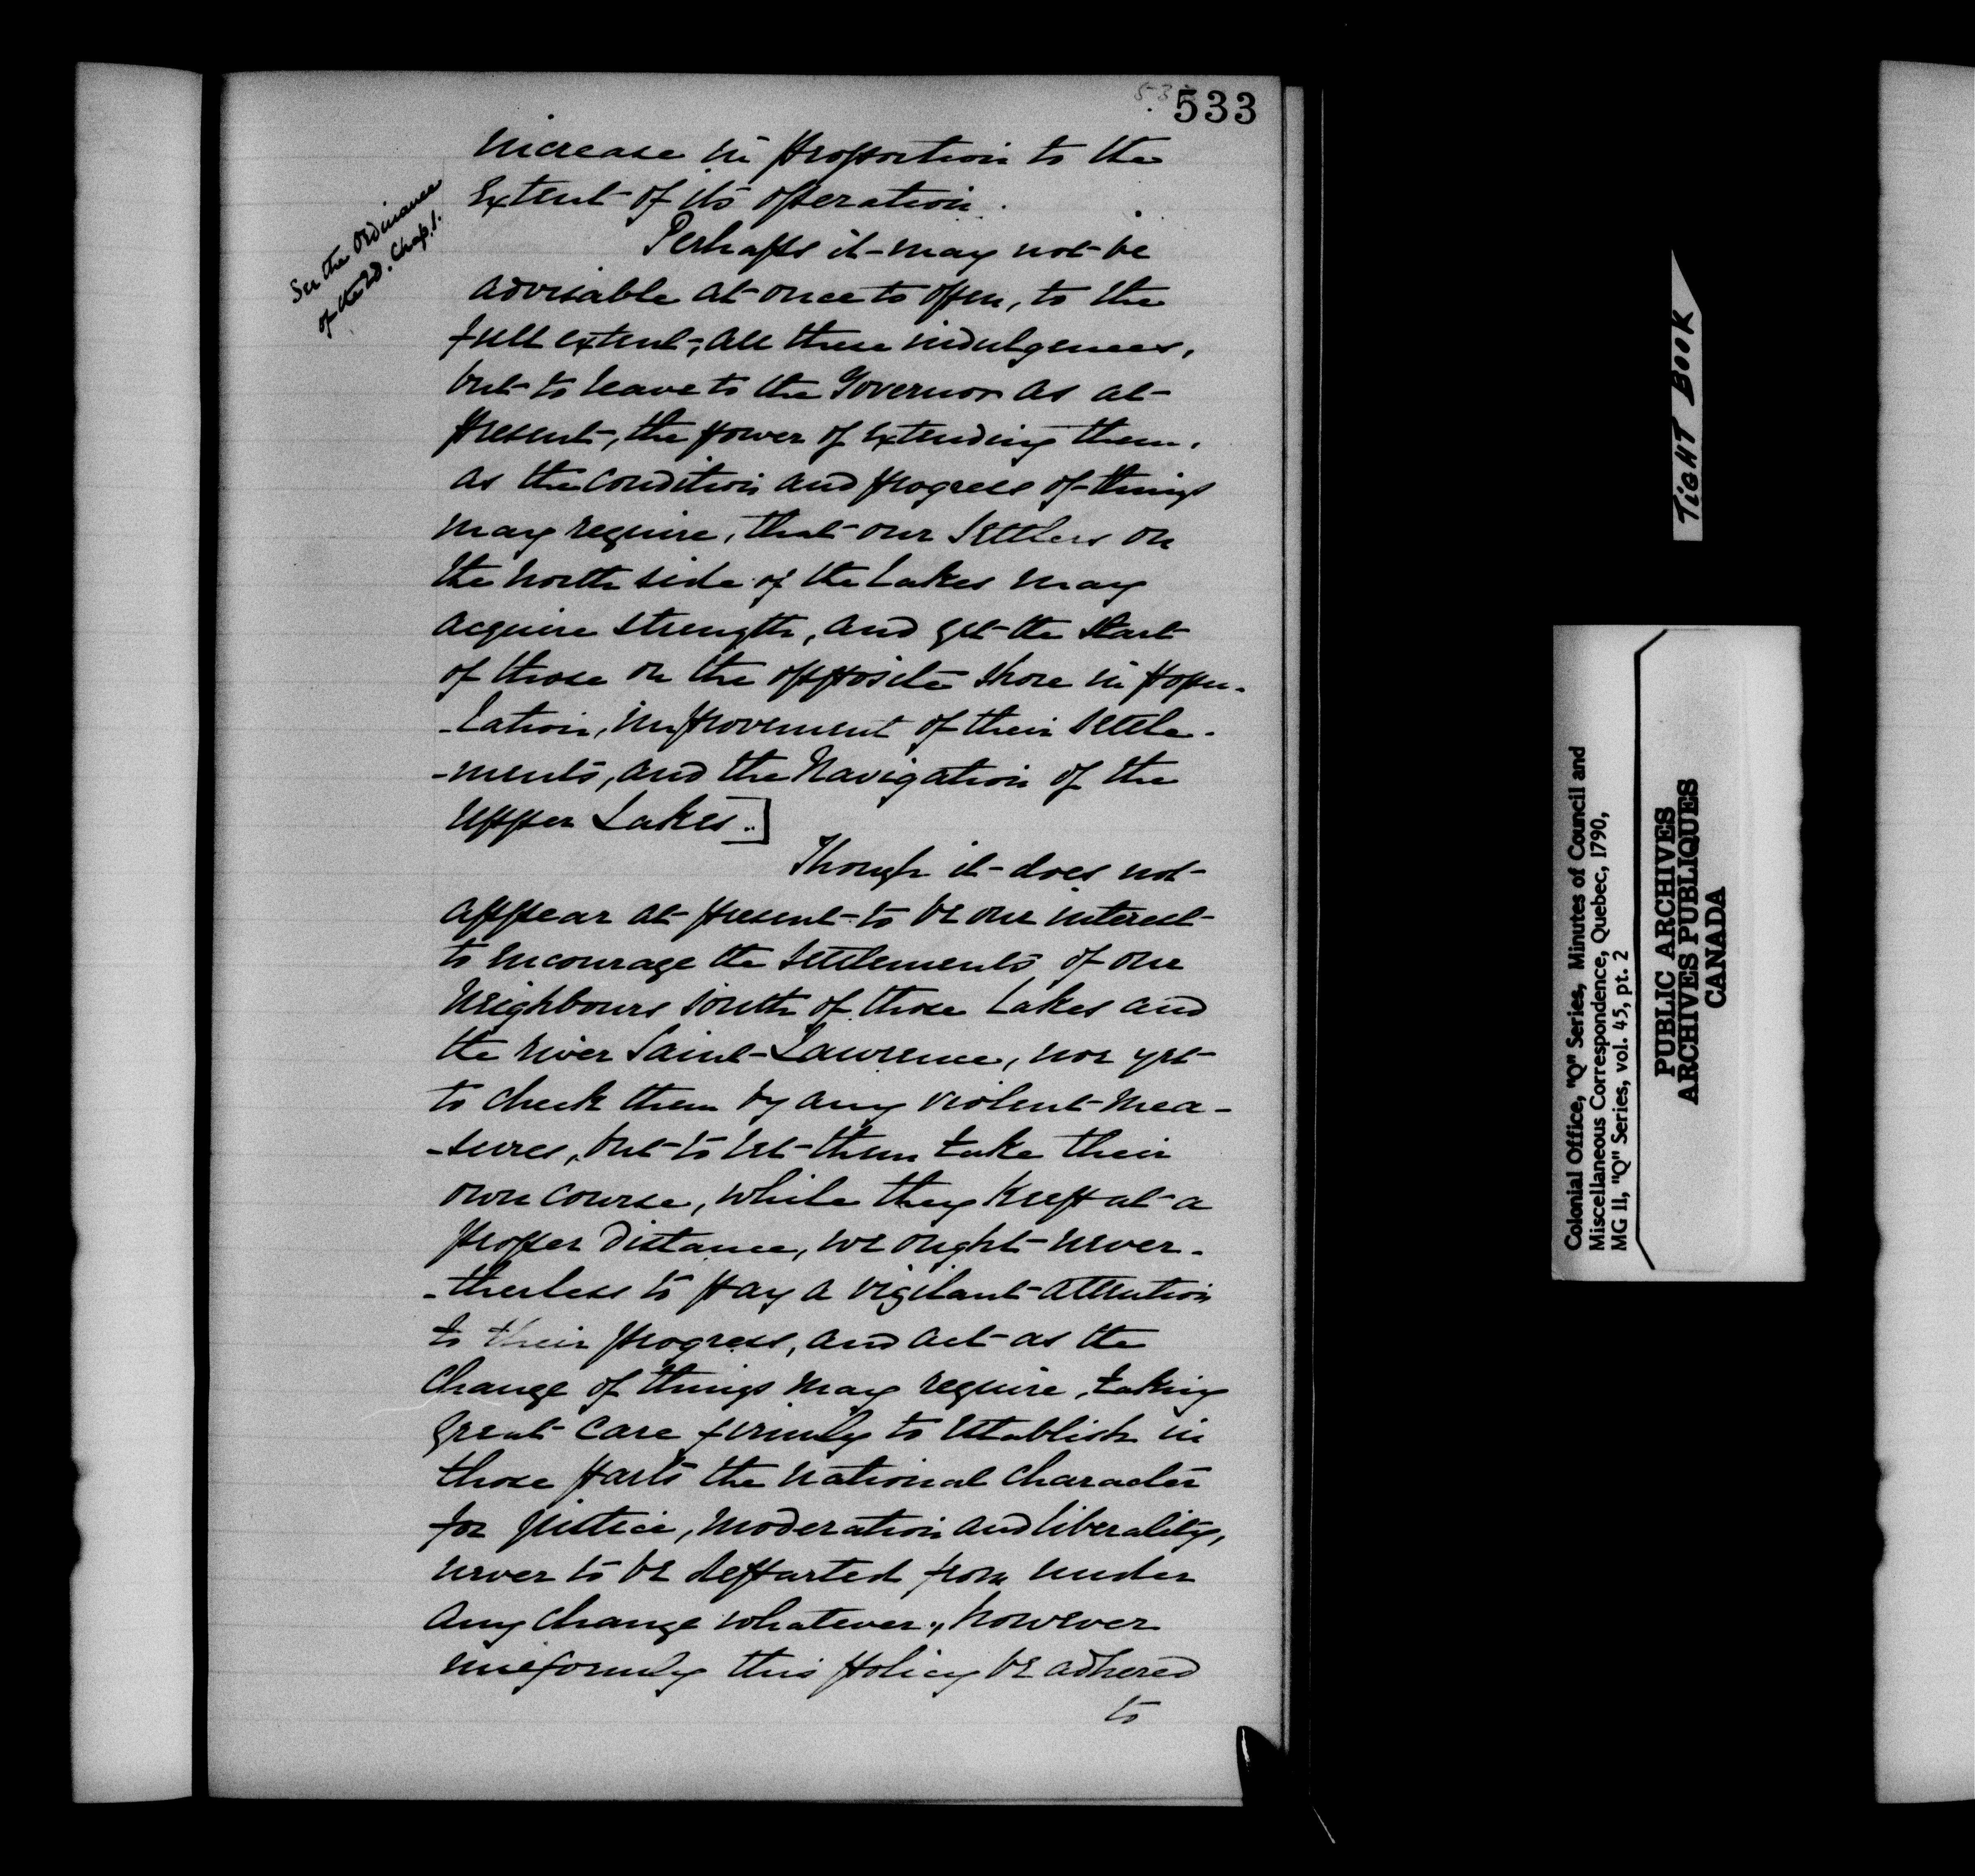 533
increase in proportion to the
extent of its operation.
See the Ordinance
of the 2d. Chap. 1.
Perhaps it may not be
advisable at once to open, to the
full extent, all these indulgences,
but to leave to the Governor as at
present, the power of extending them,
as the condition and progress of things
may require, that our settlers on
the north side of the Lakes may
acquire strength, and get the start
of those on the opposite shore in popu-
-lation, improvement of their settle-
-ments, and the Navigation of the
upper Lakes.]
Though it does not
appear at present to be our interest
to encourage the settlements of our
Neighbours south of those Lakes and
the river Saint Lawrence, nor yet
to check them by any violent mea-
-sures, but to let them take their
own course, while they keep at a
proper distance, we ought never-
-theless to pay a vigilant attention
to their progress, and act as the
change of things may require, taking
great care firmly to establish in
those parts the national character
for justice, moderation and liberality,
never to be departed from under
any change whatever, however
uniformly this policy be adhered
to
TIGHT BOOK
Colonial Office, "Q" Series, Minutes of Council and
Miscellaneous Correspondence, Quebec, 1790,
MG 11, "Q" Series, vol. 45, pt. 2
PUBLIC ARCHIVES
ARCHIVES PUBLIQUES
CANADA